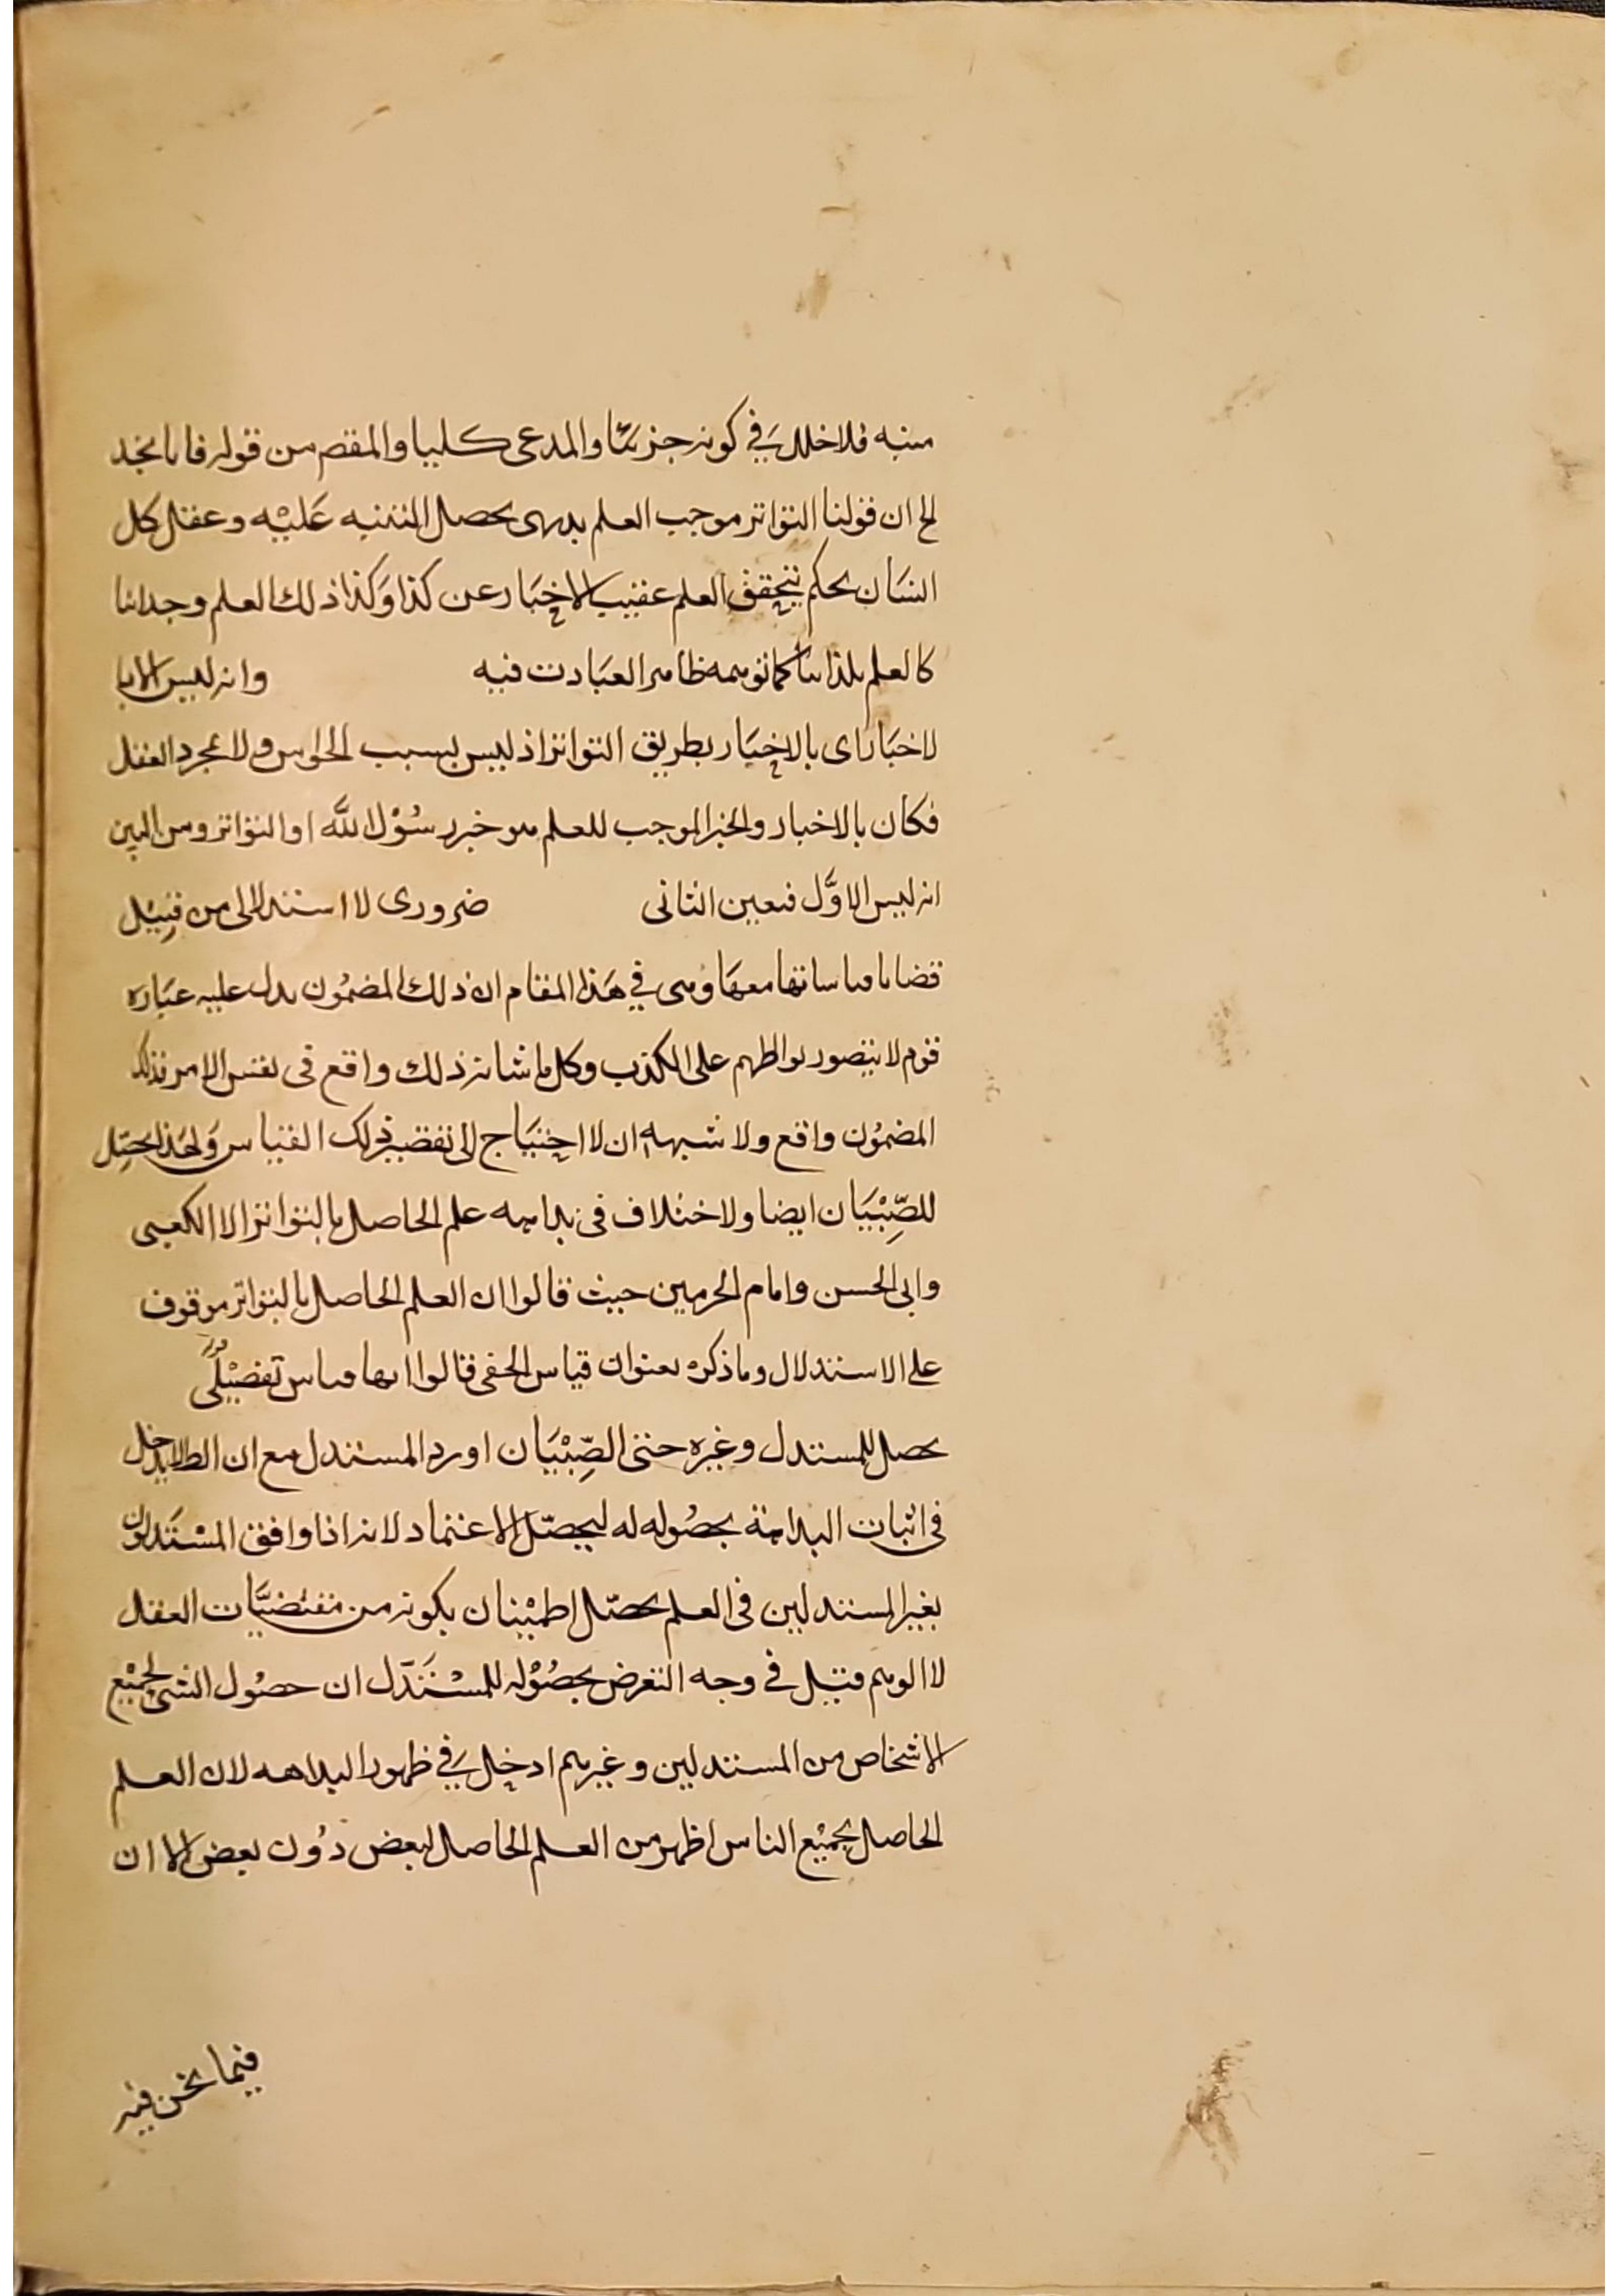 منبه فلا خلل في كونه جزئيا والمدعى كليا والمقصم من قوله فانا نجد
لح ان قولنا التواتر موجب العلم بديهى يحصل التنبيه عَليْه وعقل كل
انسَان يحكم بتحقق العلم عقيب الاخبَار عن كذا وَكذا ذلك العلم وجدانيا
كالعلم بلذاتنا كما توهمه ظاهر العبَادت فيه وانه ليس الا با
لاخبَار اى بالاخبَار بطريق التواتر اذ ليس بسبب الحواس ولا بمجرد العقل
فكان بالاخبار والخبر الموجب للعلم هو خبر رسُوْل الله او التواتر ومن البين
انه ليس الاوَّل فتعين الثانى ضرورى لا استدلالى من قبِيْل
قضايا قياساتها معهَا وَهى في هَذا المقام ان ذلك المضمُون يدل عليه عبَاره
قوم لا يتصور تواطهم على الكذب وكل ما شانه ذلك واقع فى نفس الامر فذلك
المضمُون واقع ولا شبهه ان لا احتيَاج الى تفصيز ذلك القياس وَلهَذا يحصِل
للصِّبْيَان ايضا ولا ختلاف فى بداهه علم الحاصل بالتواتر الا الكعبى
وابى الحسن وامام الحرمين حيث قالوا ان العلم الحاصل بالتواتر موقوف
على الاستدلال وما ذكره بعنوان قياس الخفى قالوا انها قياس تفصيْلىٌ
يحصل للمستدل وغيره حتى الصِّبْيَان اورد المستدل مع ان الط لا يدخل
فى اثبات البداهة بحصُوله له ليحصّل الاعتماد لانه اذا وافق المسْتَدلون
بغير المستدلين فى العلم يحصّل اطميْنان بكونه من مقتضيَّات العقل
لا الوهم قيل في وجه التعرض بحصُوْله للمسْتَدَل ان حصُول الشى لجميْع
الاشخاص من المستدلين وغيرهم ادخل في ظهور البداهه لان العلم
الحاصل بجميْع الناس اظهر من العلم الحاصل لبعض دوُن بعض الا ان
فيما نحن فيه